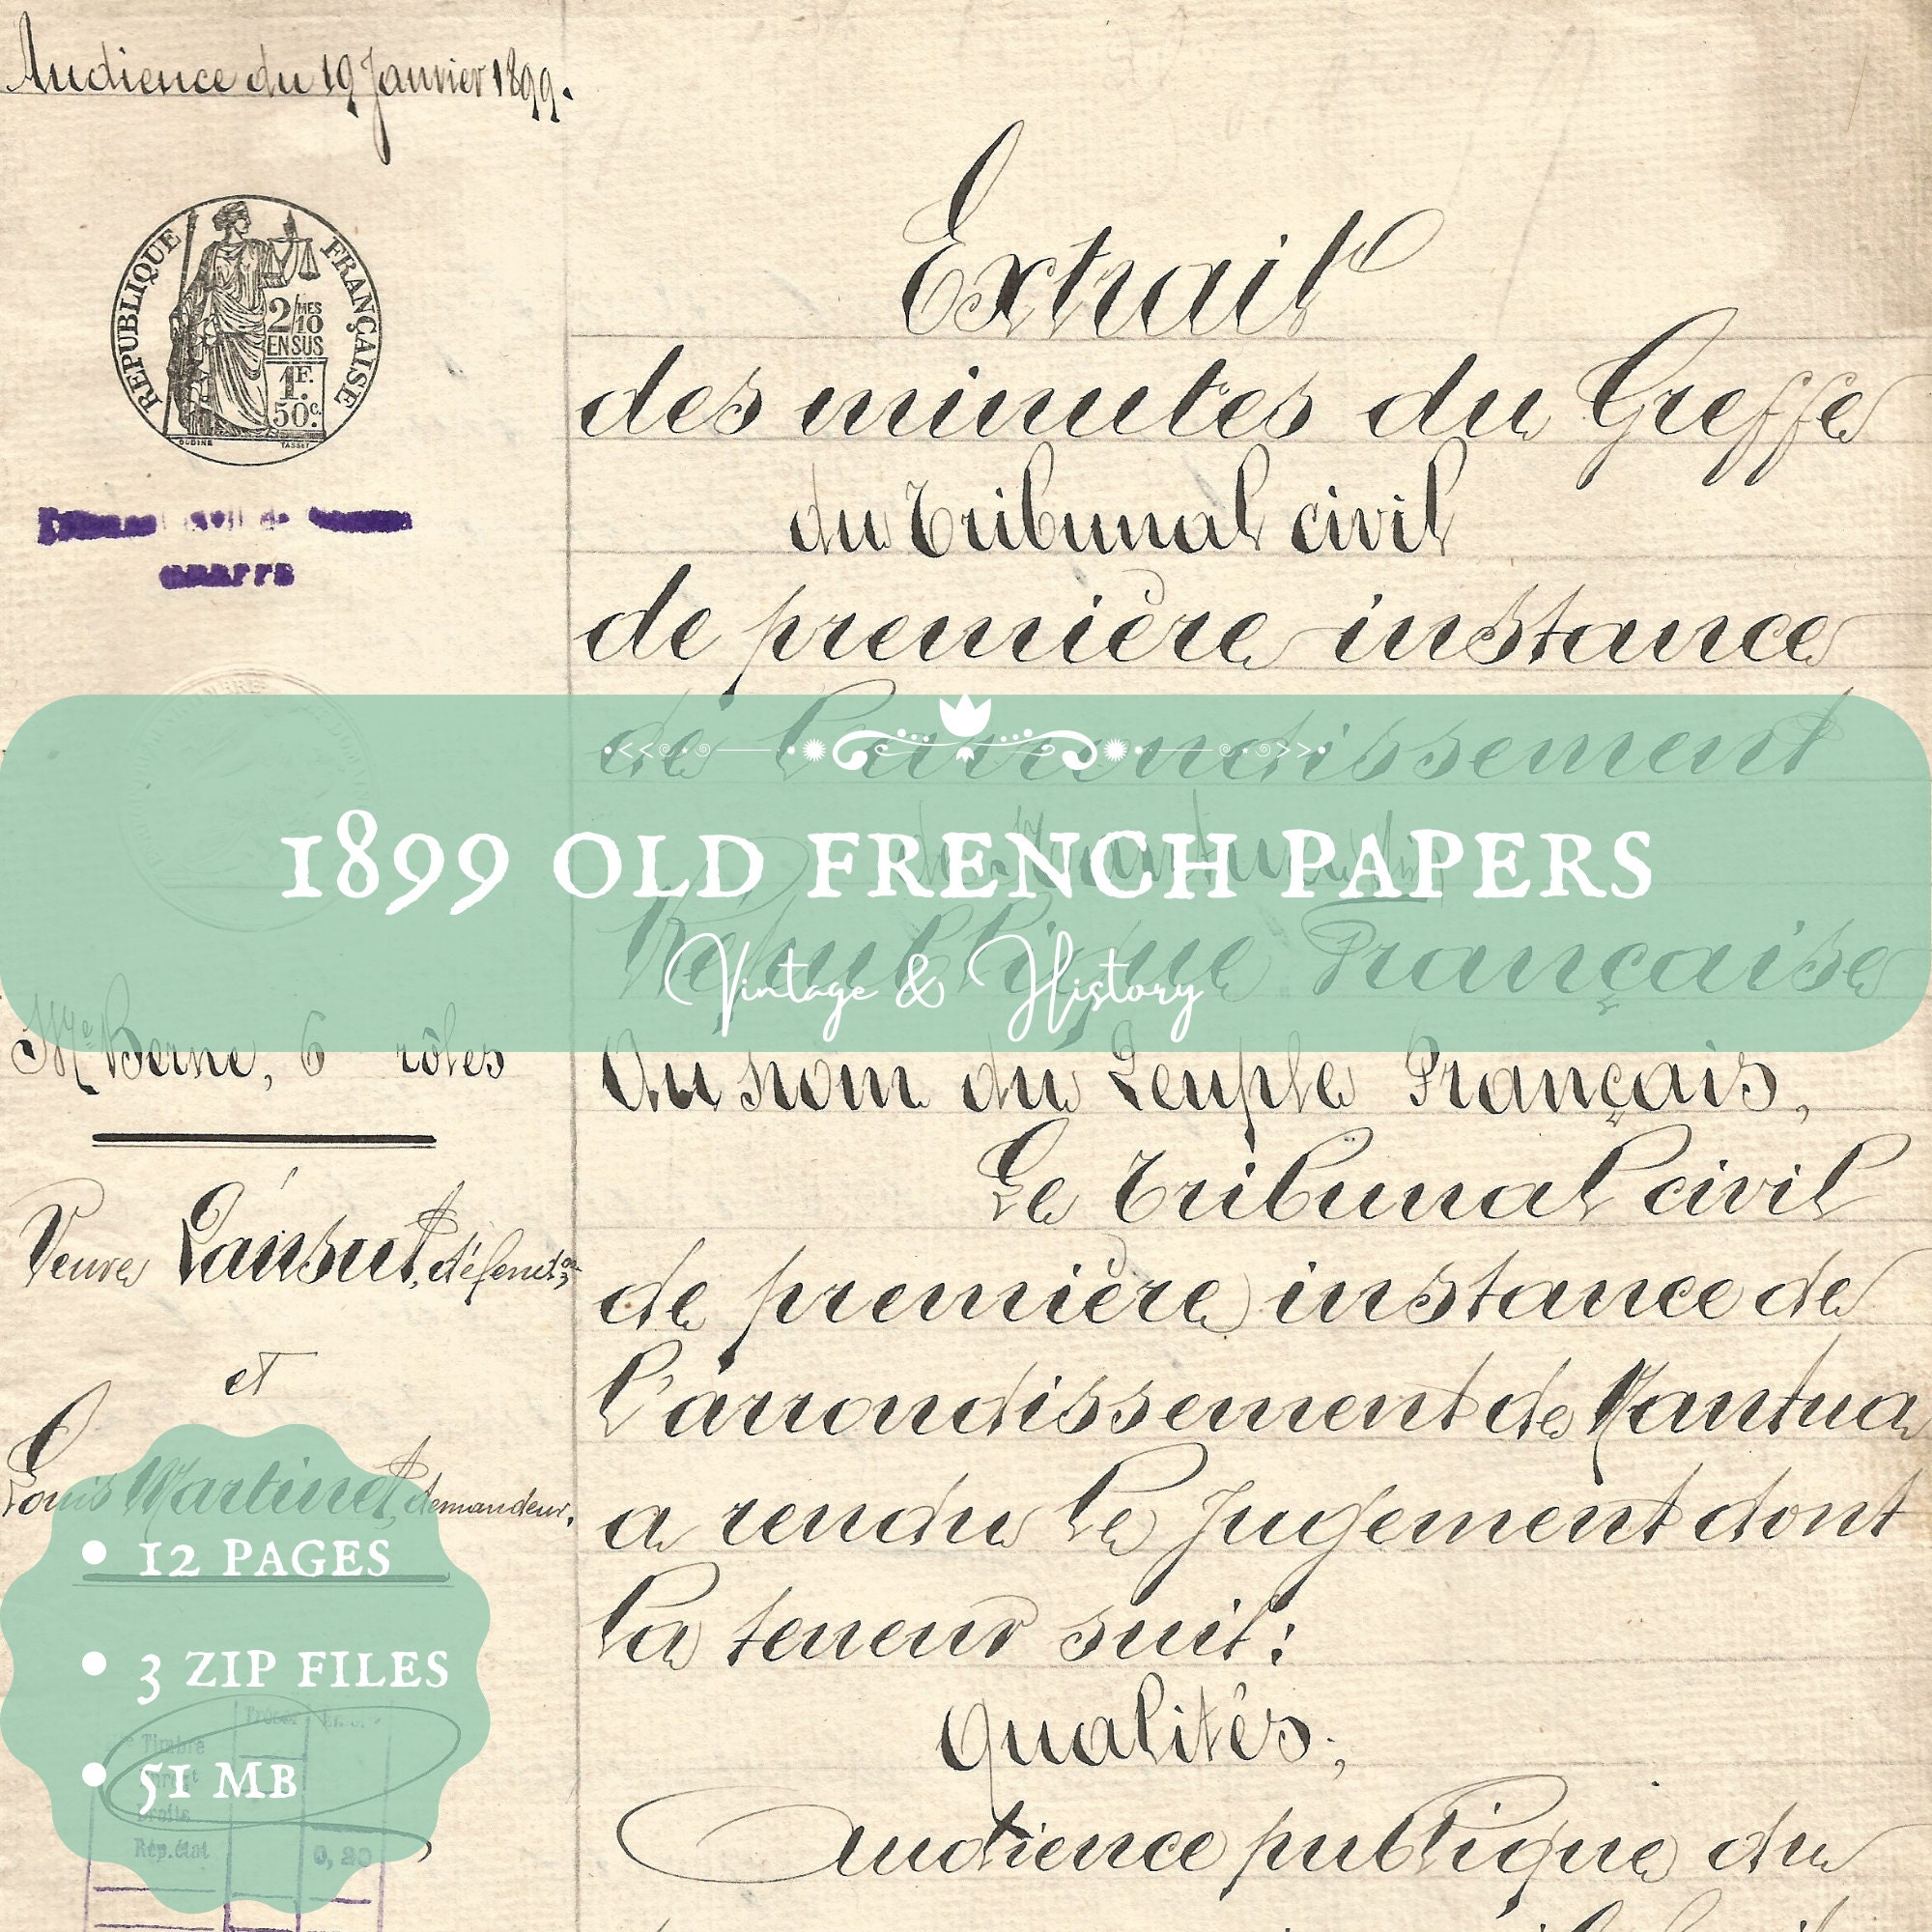 Audience du 19 Janvier 1899.
RÉPUBLIQUE FRANÇAISE
2/MES
10
EN SUS
1F.
50c.
OUDINÉ
TASSET
GREFFE
Extrait
des minutes du Greffe
du Tribunal civil
de première instance
de l'arrondissement
de Nantua
République Française
1899 OLD FRENCH PAPERS
Vintage & History
Me Berne, 6 rôles
Au nom du Peuple Français,
Le Tribunal civil
de première instance de
l'arrondissement de Nantua
a rendu le Jugement dont
la teneur suit:
Qualités;
Audience publique du
Veuve
et
Louis Martinet, demandeur.
• 12 PAGES
• 3 ZIP FILES
• 51 MB
Timbre
Droits
Rép. état
0,20